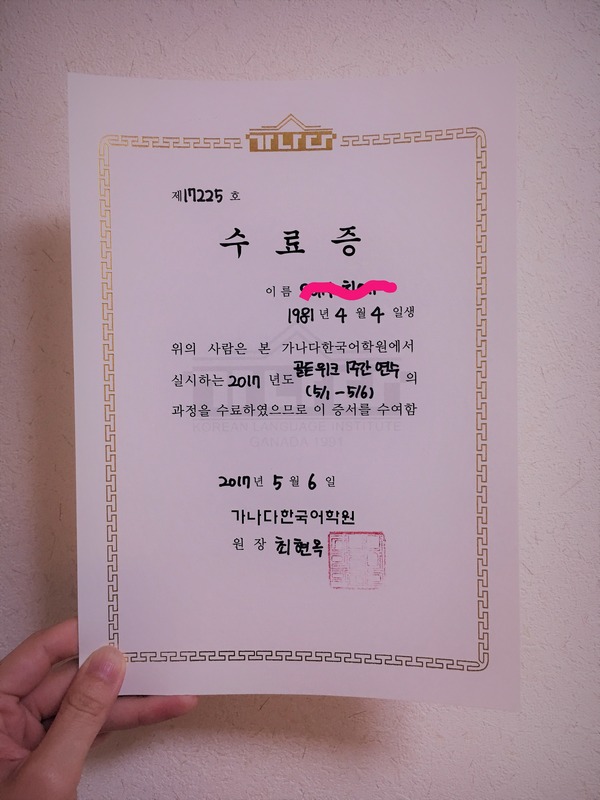 가나다
제17225 호
수료증
이름
1981년 4월 4일생
위의 사람은 본 가나다한국어학원에서
실시하는 2017 년도 골든위크 1주간 연수 의
(5/1-5/6)
과정을 수료하였으므로 이 증서를 수여함
KOREAN LANGUAGE INSTITUTE
GANADA 1991
2017년 5월 6일
가나다한국어학원
원장 최현옥